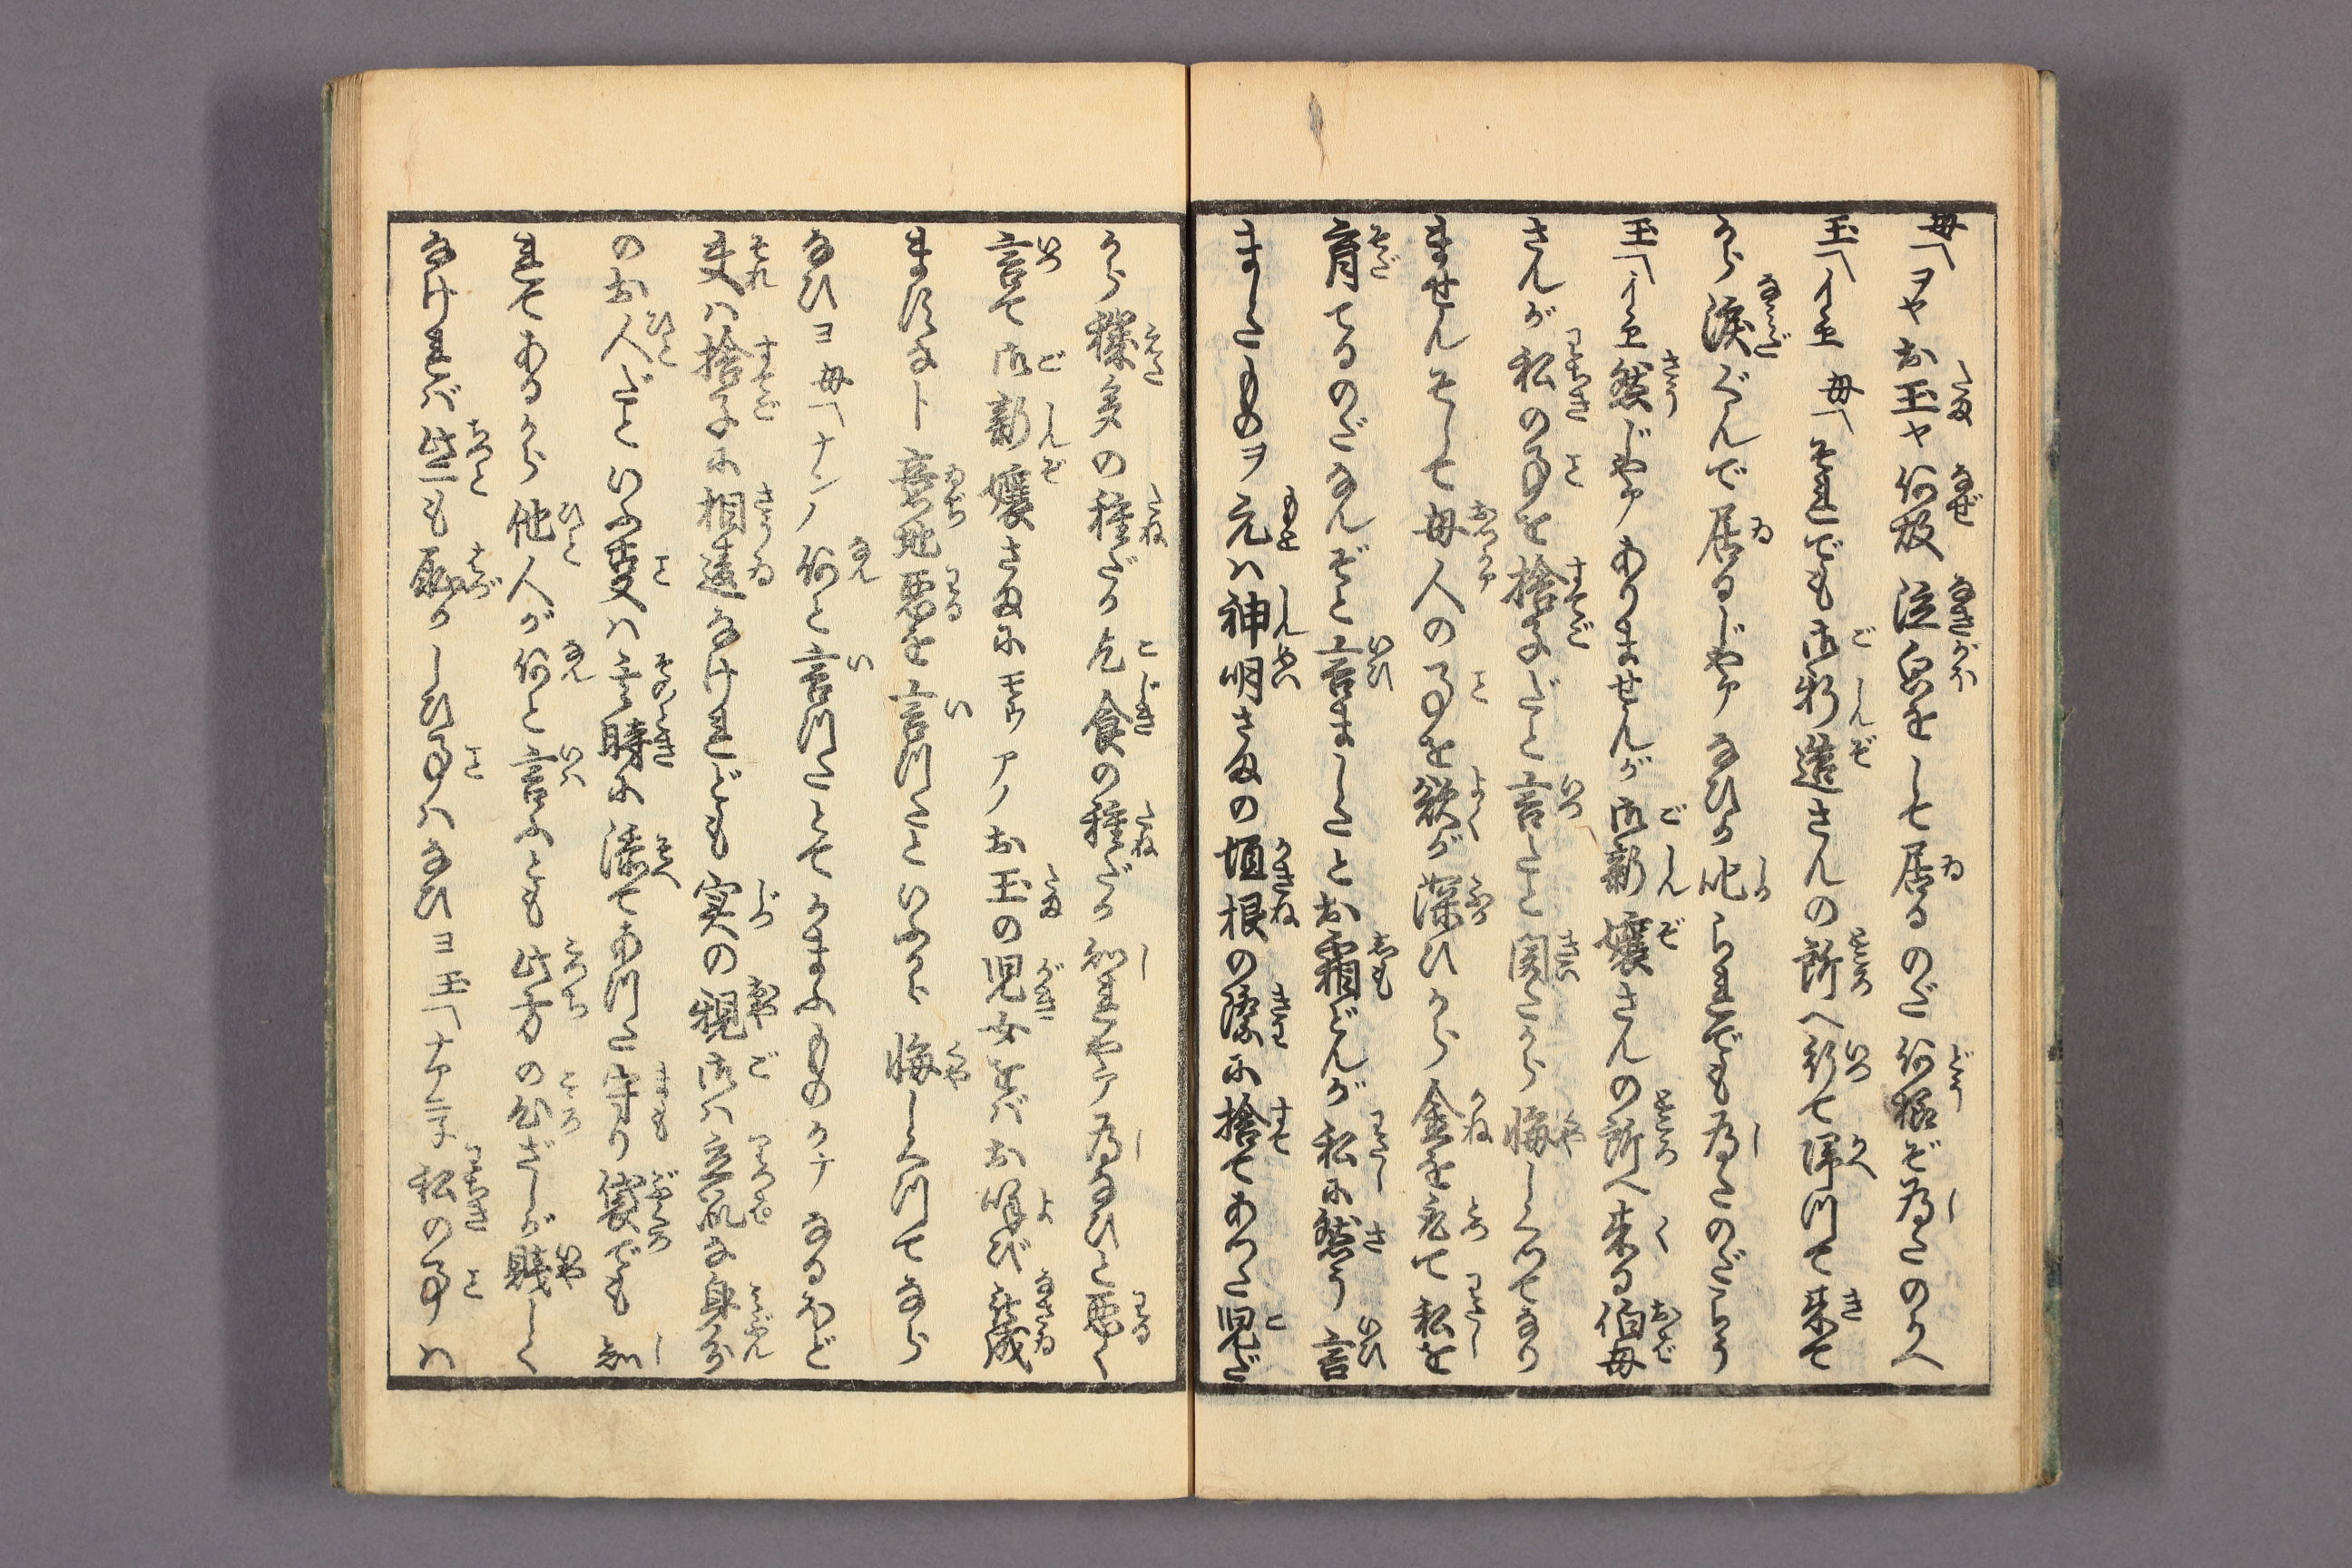 母「ヲヤお玉ヤ何故泣㒵をして居るのだ何樣ぞ為たのかへ
玉「イヽヱ母「それでも御新造さんの所へ行て帰つて来て
から涙ぐんで居るじやアなひか叱られでも為たのだらう
玉「イヽヱ然じやアありませんが御新孃さんの所へ来る伯母
さんが私の事を捨子だと言たと聞たから悔しくつてなり
ませんそして母人の事を欲が深ひから金を取て私を
育てるのだなんぞと言ましたとお霜どんが私に然う言
ましたものヲ元ハ神明さまの垣根の際に捨てあつた児だ
から穢多の種だか乞食の種だか知れやア為なひと悪く
言て御新孃さまにモウアノお玉の児女をバお呼び被成
ますなト意地悪を言つたといふから悔しくつてなら
なひヨ母「ナンノ何と言つたとてかまふものかナなるほど
夫ハ捨子に相違なけれども実の親御ハ立派な身分
のお人だといふ事ハ其時に添てあつた守り袋でも知
れてあるから他人が何と言ふとも此方の心ざしが賤しく
なけれバ些も恥かしひ事ハなひヨ玉「ナアニ私の事ハ